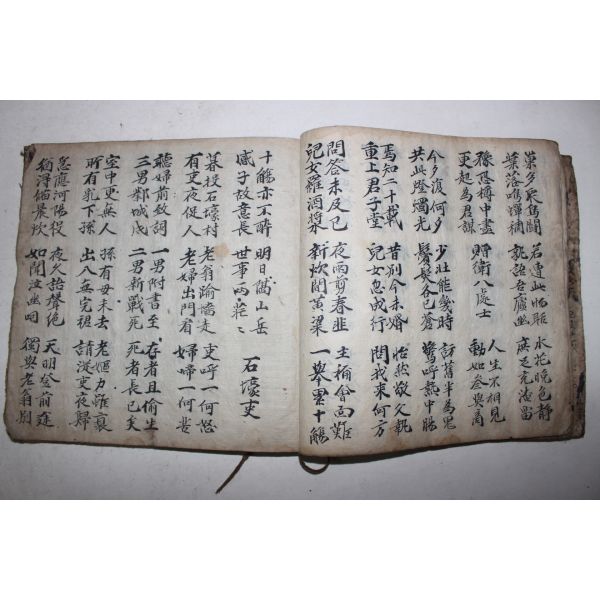 巢多眾鳥鬪
葉落鳴蟬稠
若遭此物聒
孰語吾廬幽
水花晚色靜
庶足充淹留
豫恐樽中盡
更起為君謀
贈衛八處士
人生不相見
動如參與商
今夕復何夕
共此燈燭光
少壯能幾時
鬢髮各已蒼
訪舊半為鬼
驚呼熱中膓
焉知二十載
重上君子堂
昔別今未婚
兒女忽成行
怡然敬父執
問我來何方
問答未及已
兒女羅酒漿
夜雨剪春韭
新炊間黃粱
主稱會面難
一舉累十觴
十觴亦不醉
感子故意長
明日隔山岳
世事兩茫〻
石壕吏
暮投石壕村
有吏夜促人
老翁踰墻走
老婦出門看
吏呼一何怒
婦啼一何苦
聽婦前致詞
三男鄴城戍
一男附書至
二男新戰死
存者且偷生
死者長已矣
室中更無人
所有乳下孫
孫有母未去
出入無完裙
老嫗力雖衰
請從吏夜歸
急應河陽役
猶得備晨炊
夜久語聲絕
如聞泣幽咽
天明登前途
獨與老翁別